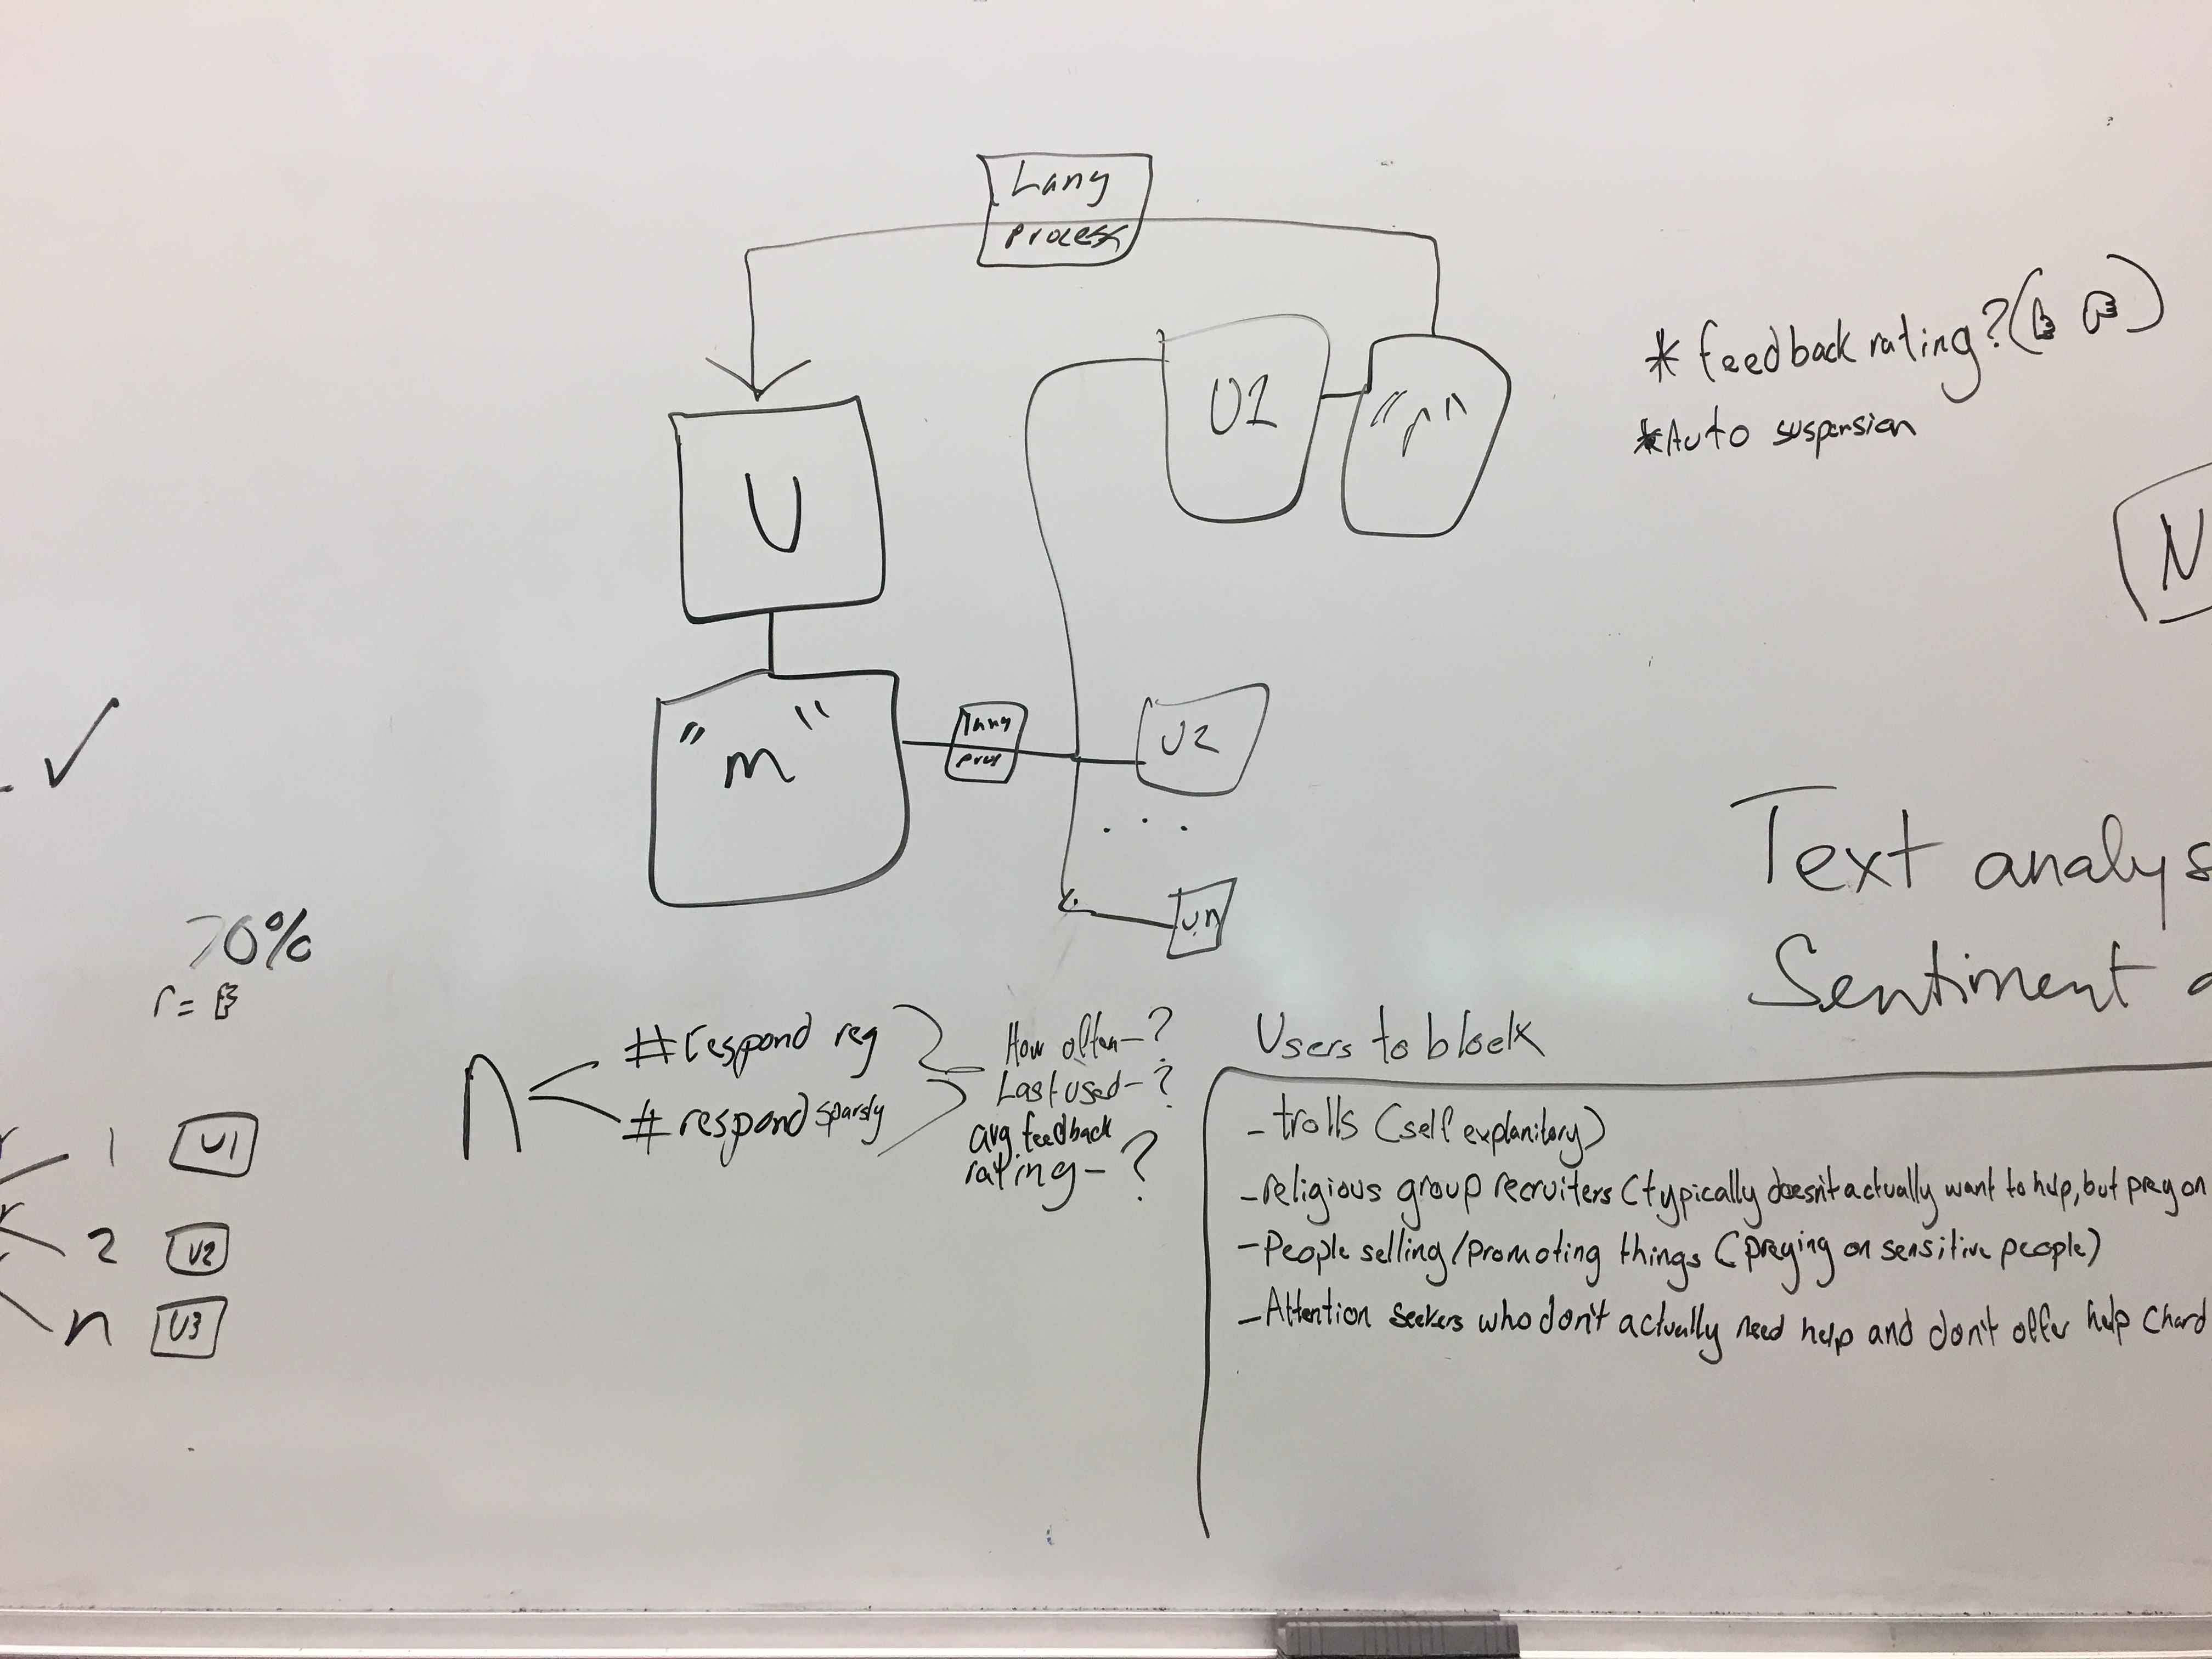 Lang
process
U
"m"
lang
U1
"r"
U2
. . .
Un
* feedback rating? ( )
*Auto suspension
N
✓
70%
r =
1 U1
2 U2
n U3
n
#respond reg
#respond sparsly
How often - ?
Last used - ?
avg feedback
rating - ?
Text analys
Sentiment a
Users to block
- trolls (self explanitory)
- religious group recruiters (typically doesn't actually want to help, but prey on
- People selling/promoting things (preying on sensitive people)
- Attention seekers who don't actually need help and don't offer help (hard